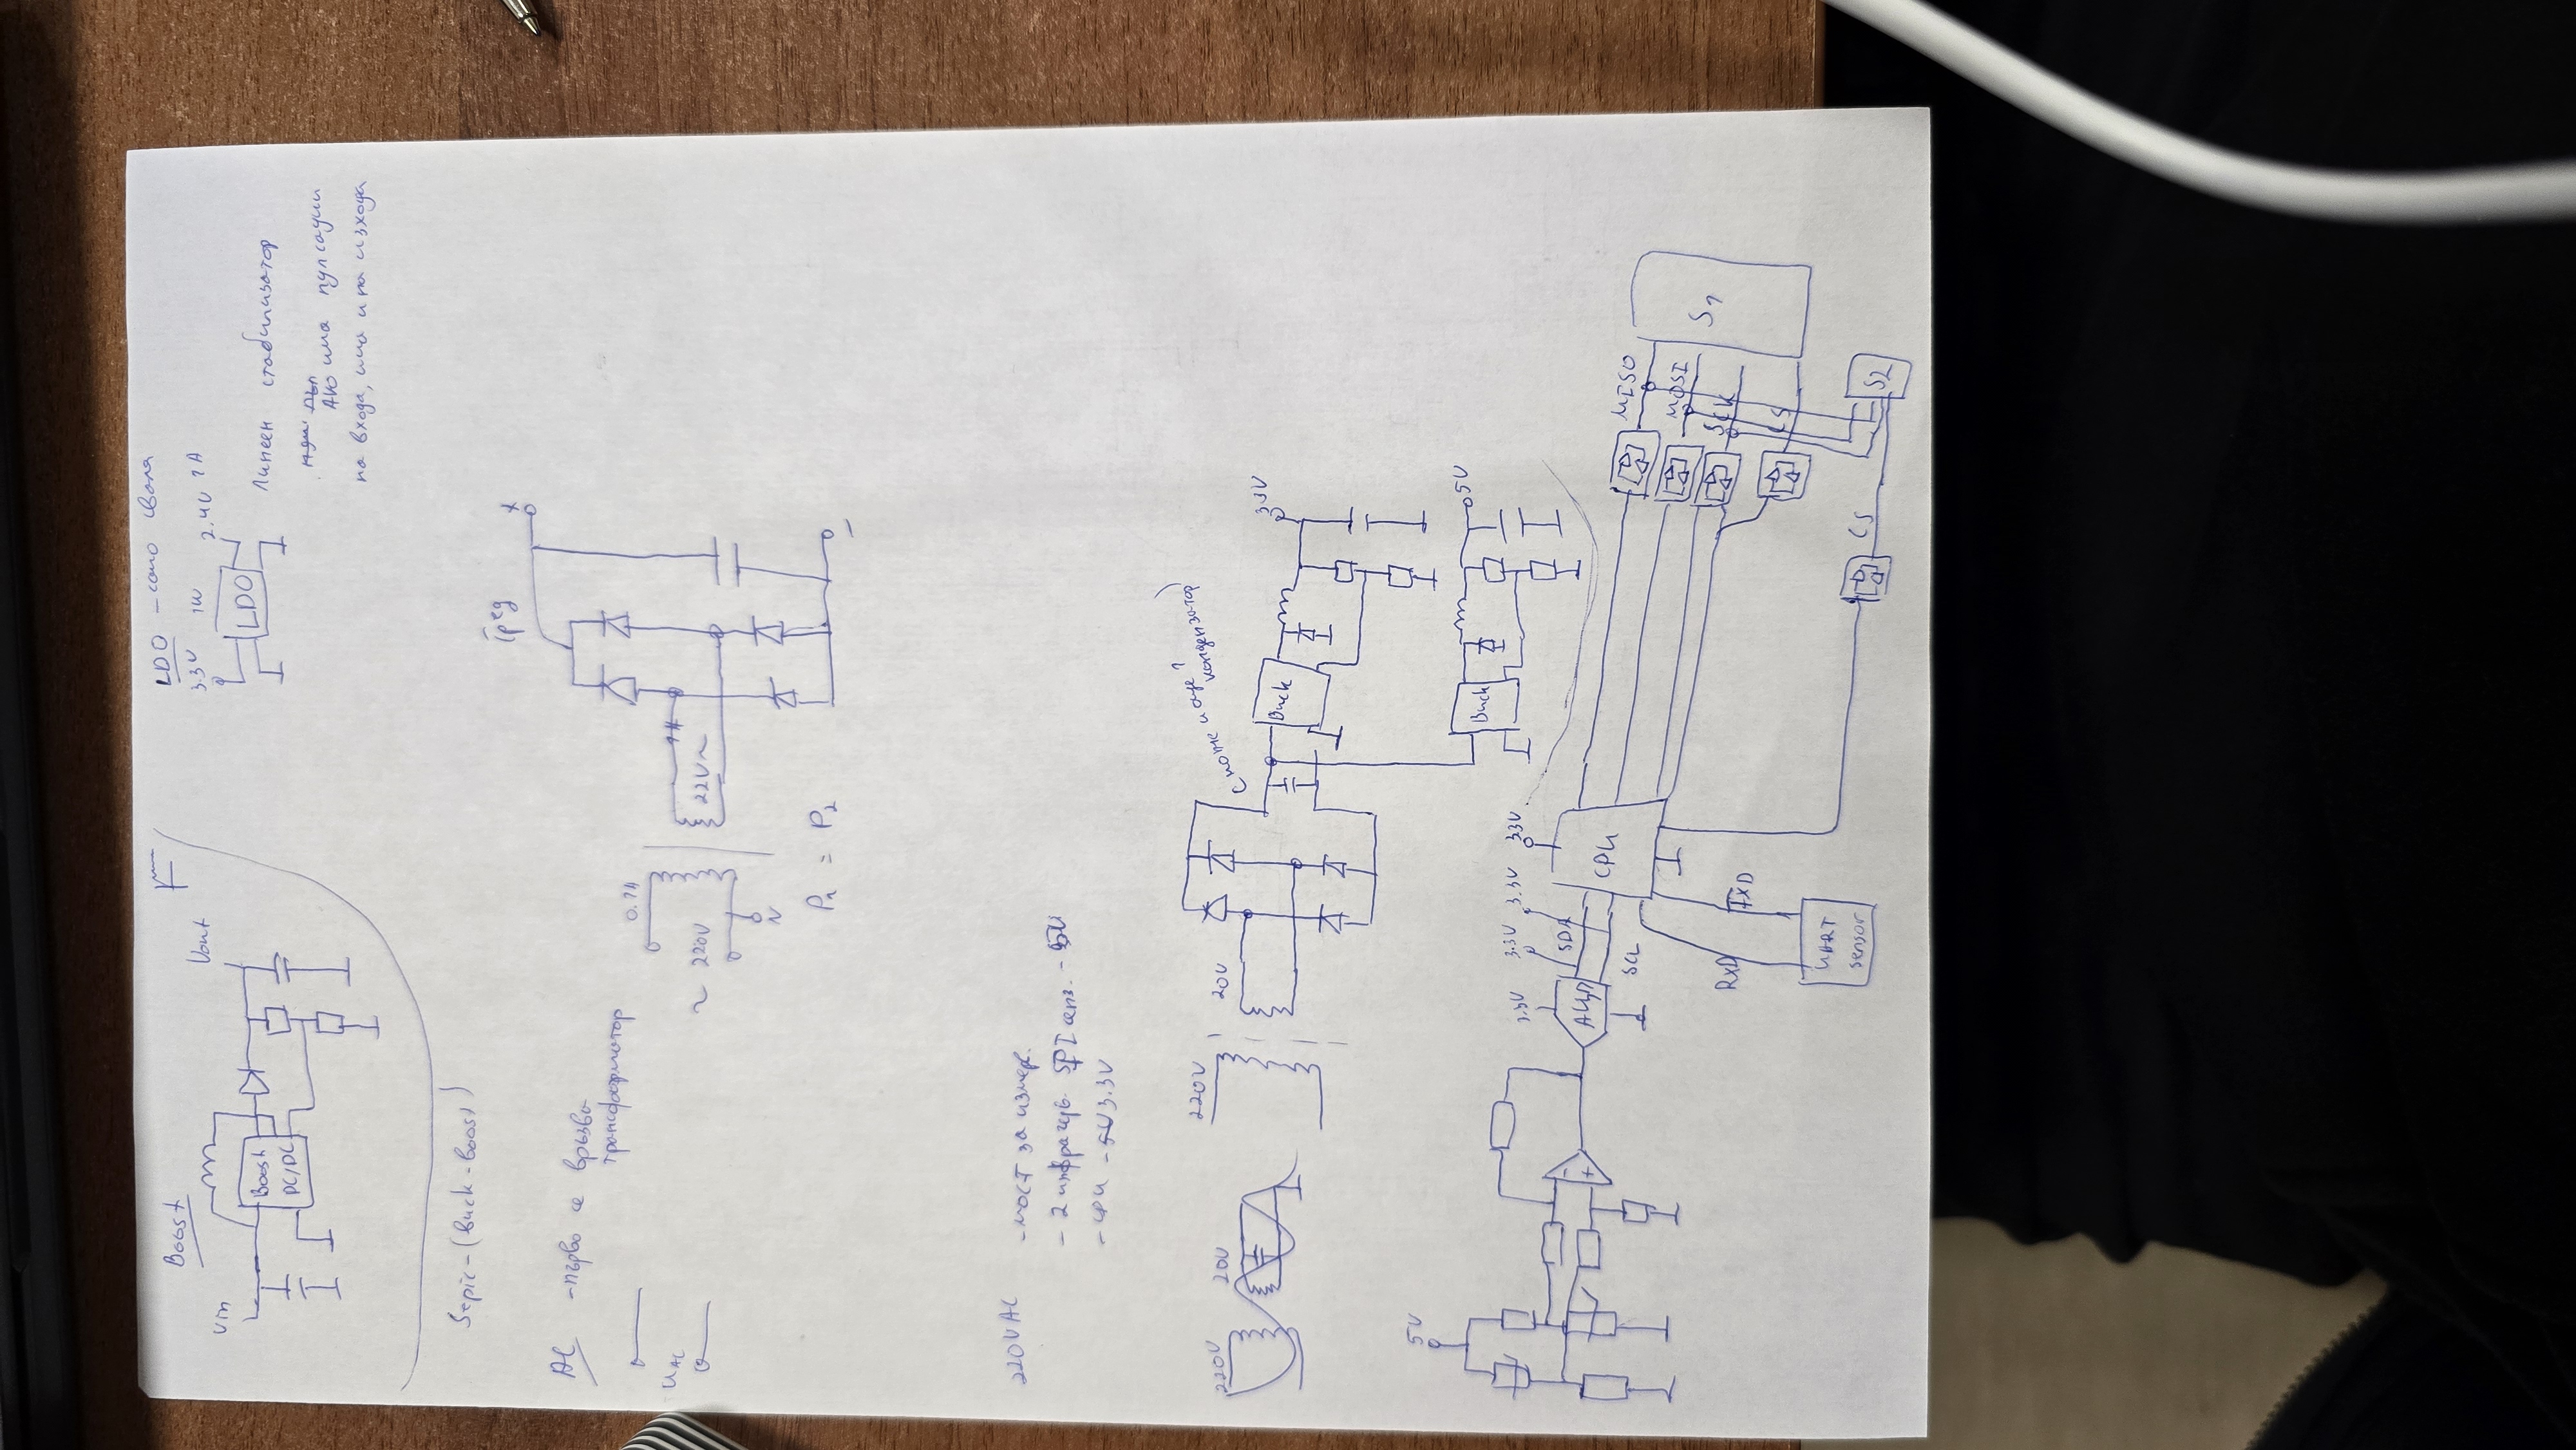 Boost
Vin
Vout
Boost
DC/DC
LDO - само сваля
3.3V
1W
2.4V 1A
LDO
Линеен стабилизатор
Ако има пулсации
на входа, има и на изхода
Sepic - (Buck-Boost)
AC - първо се връзва
трансформатор
UAC
0.1A
~ 220V
N
1A
22V~
Грец
+
-
P1 = P2
220VAC
- мост за измерв.
- 2 инфрачерв. SPI сенз. - 5V
- CPU - 5V 3.3V
220V
20V
220V
20V
(може и още 1
кондензатор)
Buck
3.3V
Buck
5V
5V
3.3V
3.3V
3.3V
3.3V
АЦП
SDA
SCL
CPU
RxD
TxD
UART
sensor
MISO
MOSI
SCK
CS
S1
CS
S2